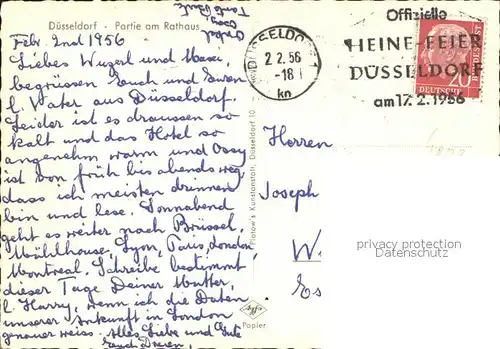 Düsseldorf - Partie am Rathaus
Febr. 2nd 1956
Liebes Wuzerl und Maxi,
begrüssen Euch und Euren
l. Vater aus Düsseldorf.
Leider ist es draussen so
kalt und das Hotel so
angenehm warm und Ossy
ist von früh bis abends weg,
dass ich meisten drinnen
bin und lese. Sonnabend
geht es weiter nach Brüssel,
Mühlhouse, Lyon, Paris, London,
Montreal. Schreibe bestimmt
dieser Tage Deiner Mutter,
l. Harry, wenn ich die Daten
unserer Ankunft in London
genauer weiss. Alles Liebe und Gute
Euch Dreien,
DÜSSELDORF
2.2.56
-18
kn
Offizielle
HEINE-FEIER
DÜSSELDORF
am 17.2.1956
20
DEUTSCHE
BUNDESPOST
Herren
Joseph
W
Es
Kunstanstalt, Düsseldorf 10
Agfa
Papier
privacy protection
Datenschutz